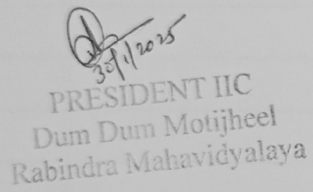 30/1/2025
PRESIDENT IIC
Dum Dum Motijheel
Rabindra Mahavidyalaya